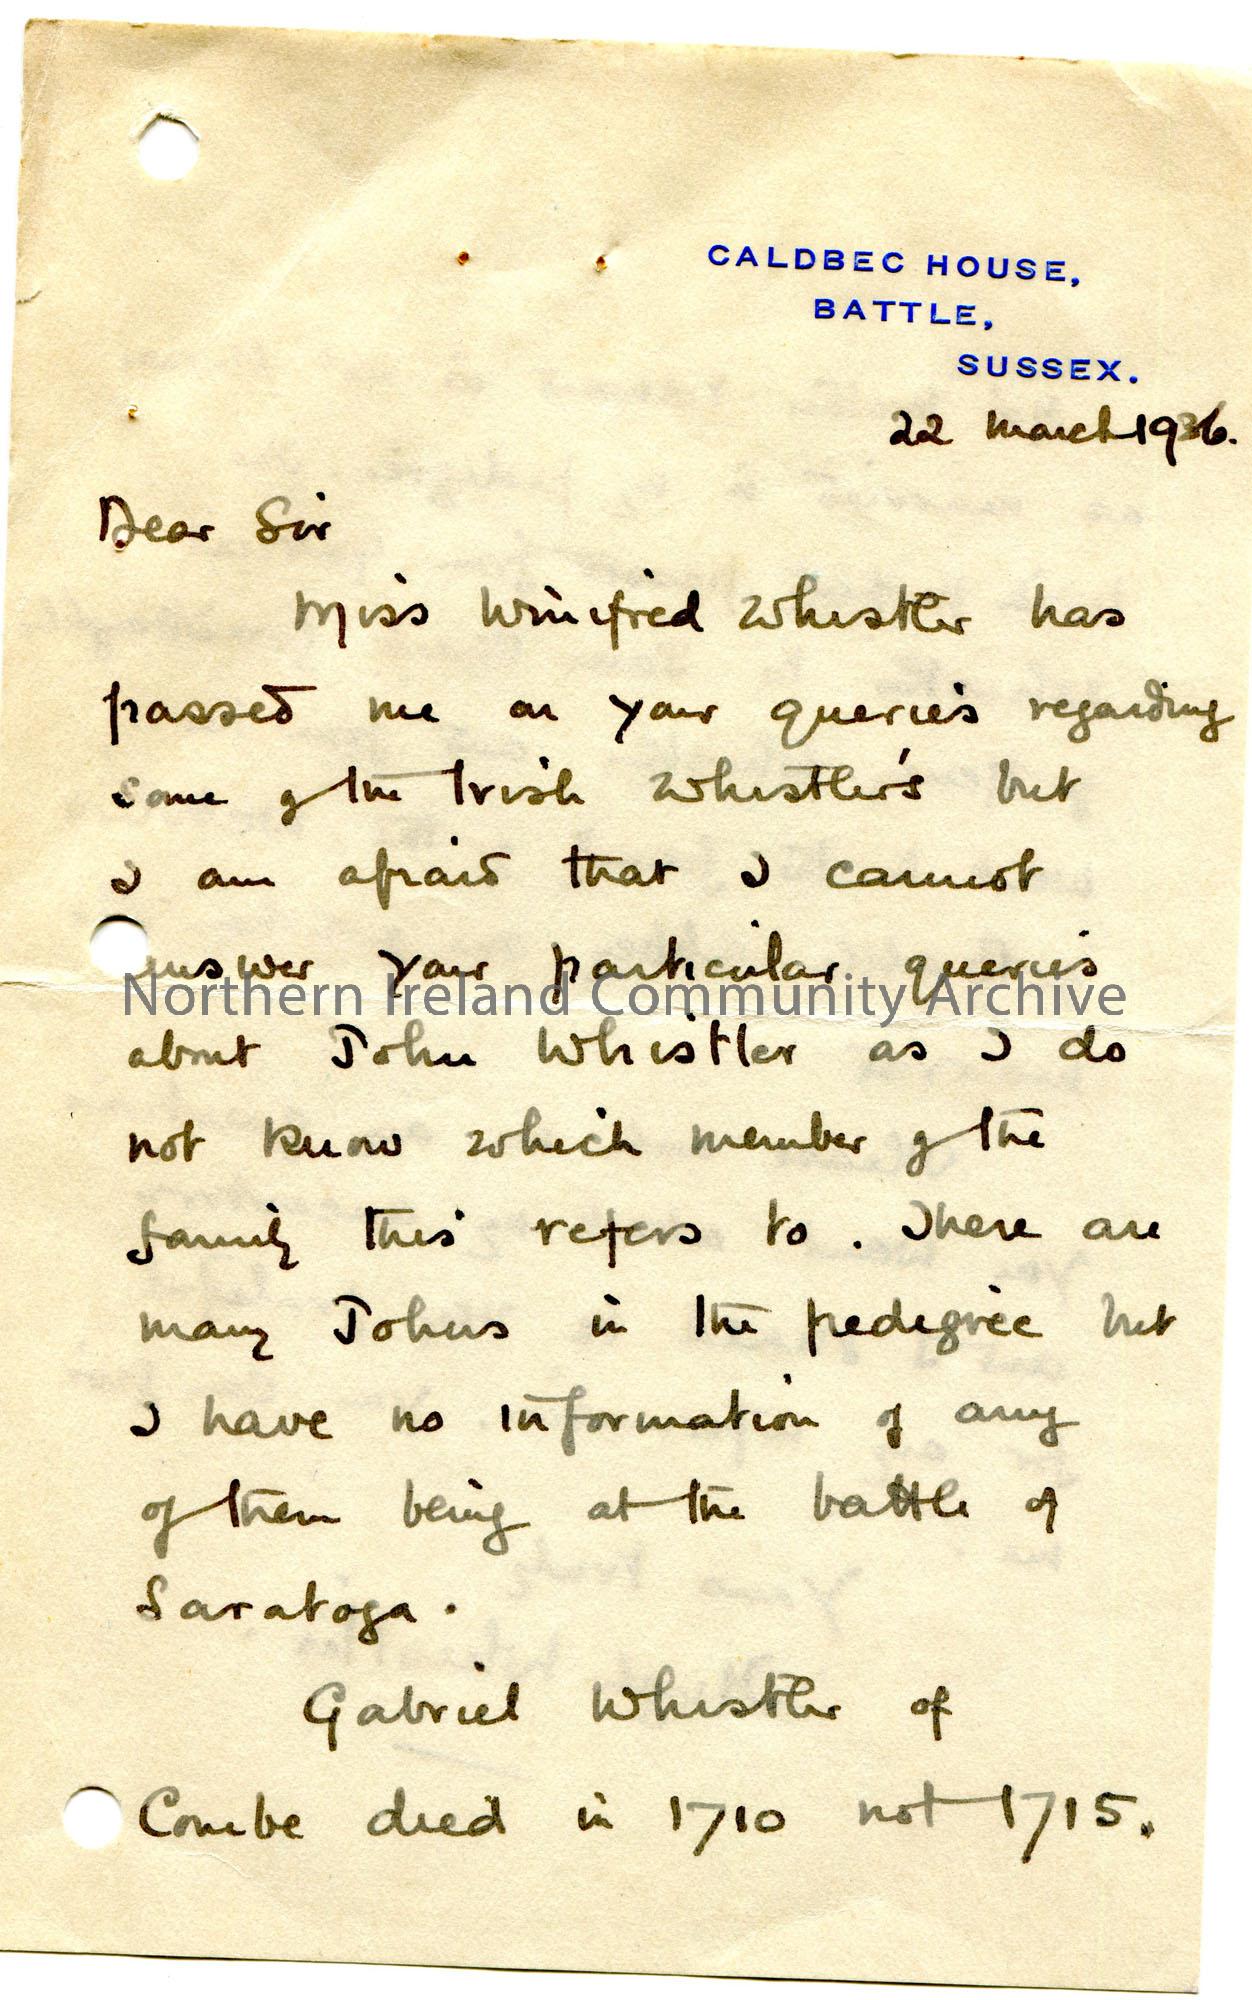 CALDBEC HOUSE,
BATTLE,
SUSSEX.
22 March 1936.
Dear Sir
Miss Winifred Whistler has
passed me on your queries regarding
some of the Irish Whistler's but
I am afraid that I cannot
answer your particular queries
Northern Ireland Community Archive
about John Whistler as I do
not know which member of the
family this refers to. There are
many Johns in the pedigree but
I have no information of any
of them being at the battle of
Saratoga.
Gabriel Whistler of
Combe died in 1710 not 1715.